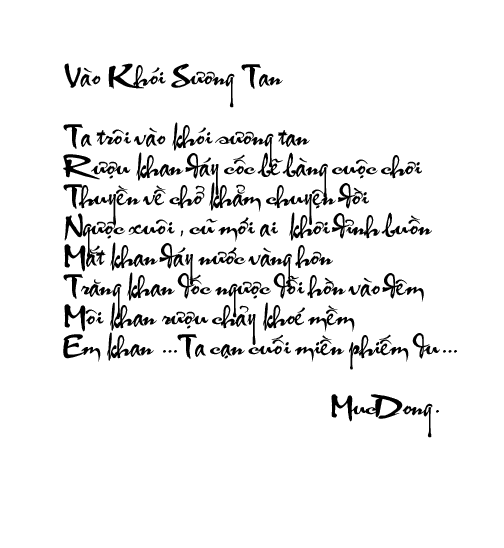 Vào Khói Sương Tan
Ta trôi vào khói sương tan
Rượu khan đáy cốc bẽ bàng cuộc chơi
Thuyền về chở khẳm chuyện đời
Ngược xuôi , cũ mới ai khơi đỉnh buồn
Mắt khan đáy nước vàng hơn
Trăng khan dốc ngược đồi hờn vào đêm
Môi khan rượu chảy khoé mềm
Em khan ...Ta cạn cuối miền phiếm du ...
MucDong.